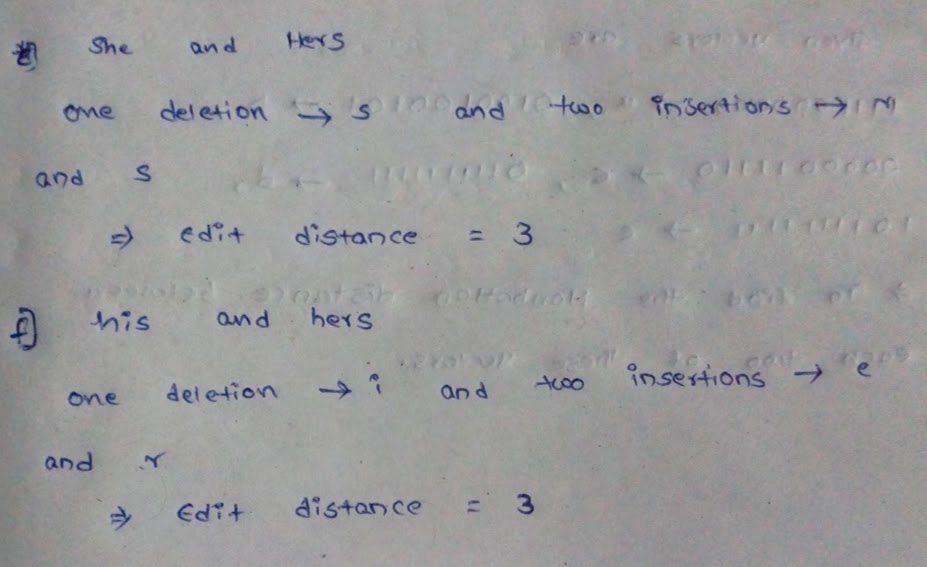 e) She and Hers
one deletion → s and two insertions → r
and s
⇒ edit distance = 3
f) his and hers
one deletion → i and two insertions → e
and r
⇒ Edit distance = 3